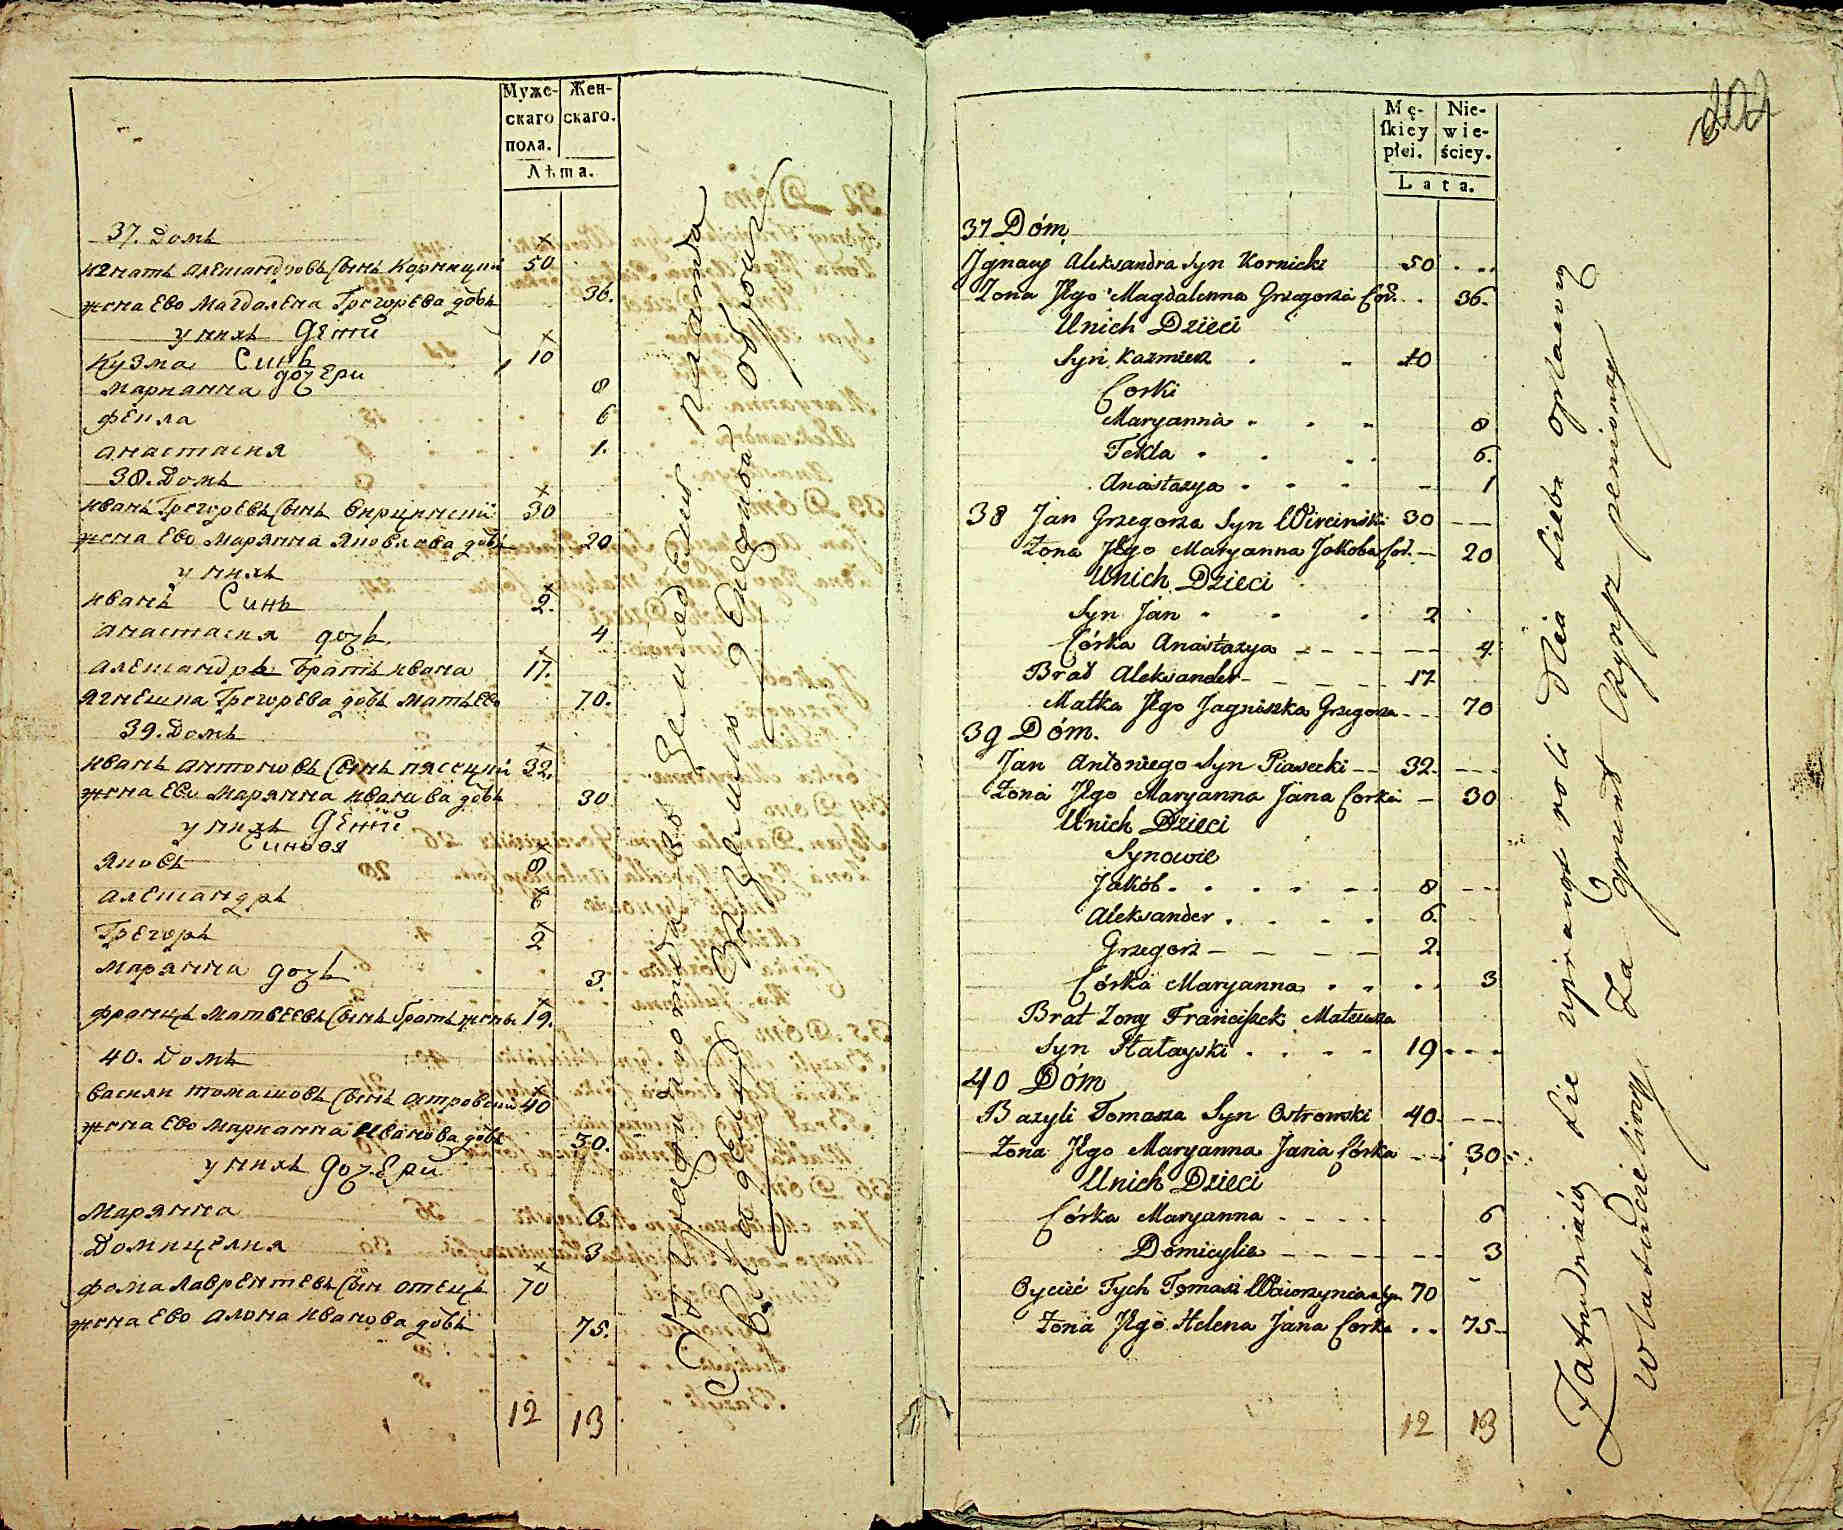 Муже-
скаго
пола.
Жен-
скаго.
Лѣта.
37. Домъ
Игнатъ Александровъ Сынъ Корницкий 50
жена Ево Магдалена Грегорева дочь 36.
у нихъ Дети
Кузма Синъ 10
дочери
Марианна 8
Фекла 6
Анастасия 1.
38. Домъ
Иванъ Грегоревъ Сынъ Вирцинский 30
жена Ево Марянна Яковлава дочь 20
у нихъ
Иванъ Синъ 2.
Анастасия дочь 4
Александръ Братъ Ивана 17.
Ягнешка Грегорева дочь мать Ево 70.
39. Домъ
Иванъ Антоновъ Сынъ Пясецкий 32.
жена Ево Марянна Иванова дочь 30
у нихъ Дети
Синовя
Яковъ 8
Александръ 6
Грегоръ 2
Марянна дочь 3.
Францъ Матвеевъ Сынъ братъ жены 19.
40. Домъ
Василий Томашовъ Сынъ Астровский 40
жена Ево Марианна Иванова дочь 30.
у нихъ дочери
Марянна 6
Домицелия 3
Фома Лаврентевъ Сынъ отецъ 70
жена Ево Алона Иванова дочь 75.
12 13
202
Mę-
ſkiey
płci.
Nie-
wie-
ściey.
Lata.
37 Dóm
Jgnacy Alexsandra Syn Kornicki 50
Zona Jego Magdalenna Grzegorza Cor. 36.
Unich Dzieci
Syn Kazmierz 10
Corki
Maryanna 8
Tekla 6.
Anastazya 1
38 Jan Grzegorza Syn Wirciński 30
Zona Jego Maryanna Jakoba Cor. 20
Unich Dzieci
Syn Jan 2
Córka Anastazya 4
Brad Aleksander 17
Matka Jego Jagniszka Grzegorza 70
39 Dóm.
Jan Antoniego Syn Piasecki 32.
Zona Jego Maryanna Jana Corka 30
Unich Dzieci
Synowie
Jakób 8
Aleksander 6.
Grzegorz 2.
Córka Maryanna 3
Brat Zony Franciszek Mateusza
Syn 19
40 Dóm
Bazyli Tomasza Syn Ostrowski 40.
Zona Jego Maryanna Jana Córka 30
Unich Dzieci
Córka Maryanna 6
Domicylia 3
Oyciec Tych Tomasz Wawrzynca syn 70
Zona Jego Helena Jana Corka 75
12 13
Zatrudniaią sie uprawą roli dla siebie opłacaią
właścicielowi za grunt Czynsz pieniężny